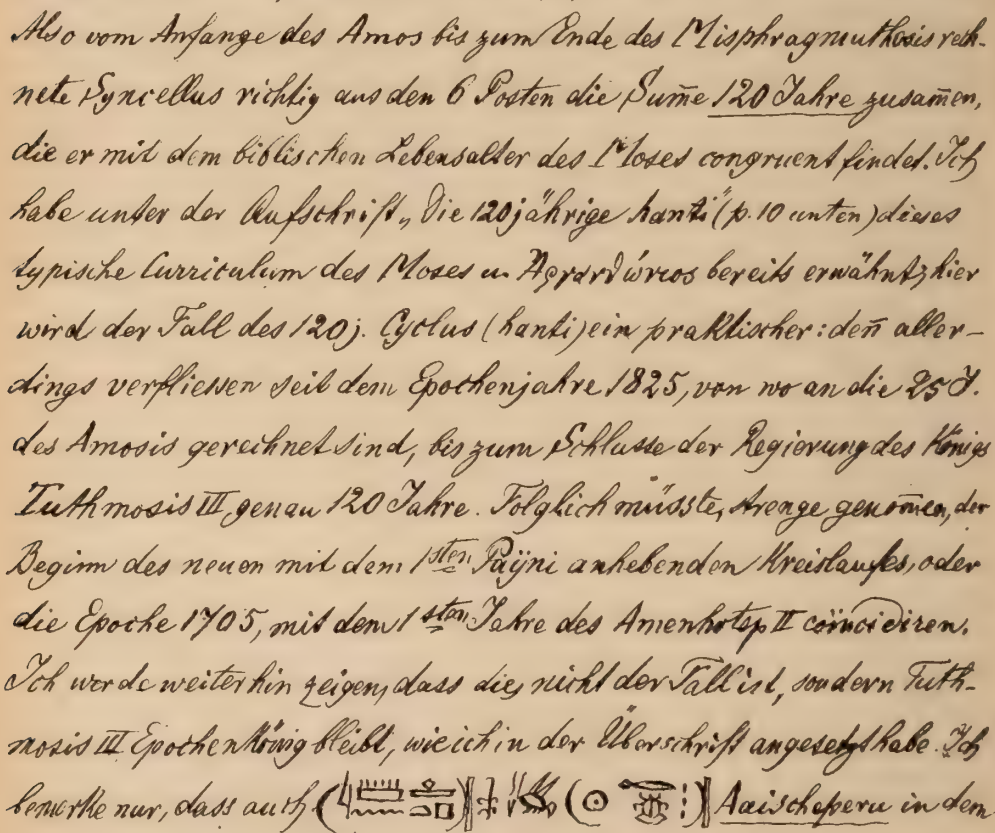 Also vom Anfange des Amos bis zum Ende des Misphragmuthosis rech-
nete Syncellus richtig aus den 6 Posten die Sum̄e 120 Jahre zusam̄en,
die er mit dem biblischen Lebensalter des Moses congruent findet. Ich
habe unter der Aufschrift „Die 120jährige hanti" (p. 10 unten) dieses
typische Curriculum des Moses u. bereits erwähnt; hier
wird der Fall des 120j. Cyclus (hanti) ein praktischer: den̄ aller-
dings verfliessen seit dem Epochenjahre 1825, von wo an die 25 J.
des Amosis gerechnet sind, bis zum Schlusse der Regierung des Königs
Tuthmosis III, genau 120 Jahre. Folglich müsste, strenge genom̄en, der
Beginn des neuen mit dem 1sten Payni anhebenden Kreislaufes, oder
die Epoche 1705, mit dem 1sten Jahre des Amenhotep II coincidiren.
Ich werde weiterhin zeigen, dass dies nicht der Fall ist, sondern Tuth-
mosis III Epochenkönig bleibt, wie ich in der Überschrift angesetzt habe. Ich
bemerke nur, dass auch Aaischeperu in dem